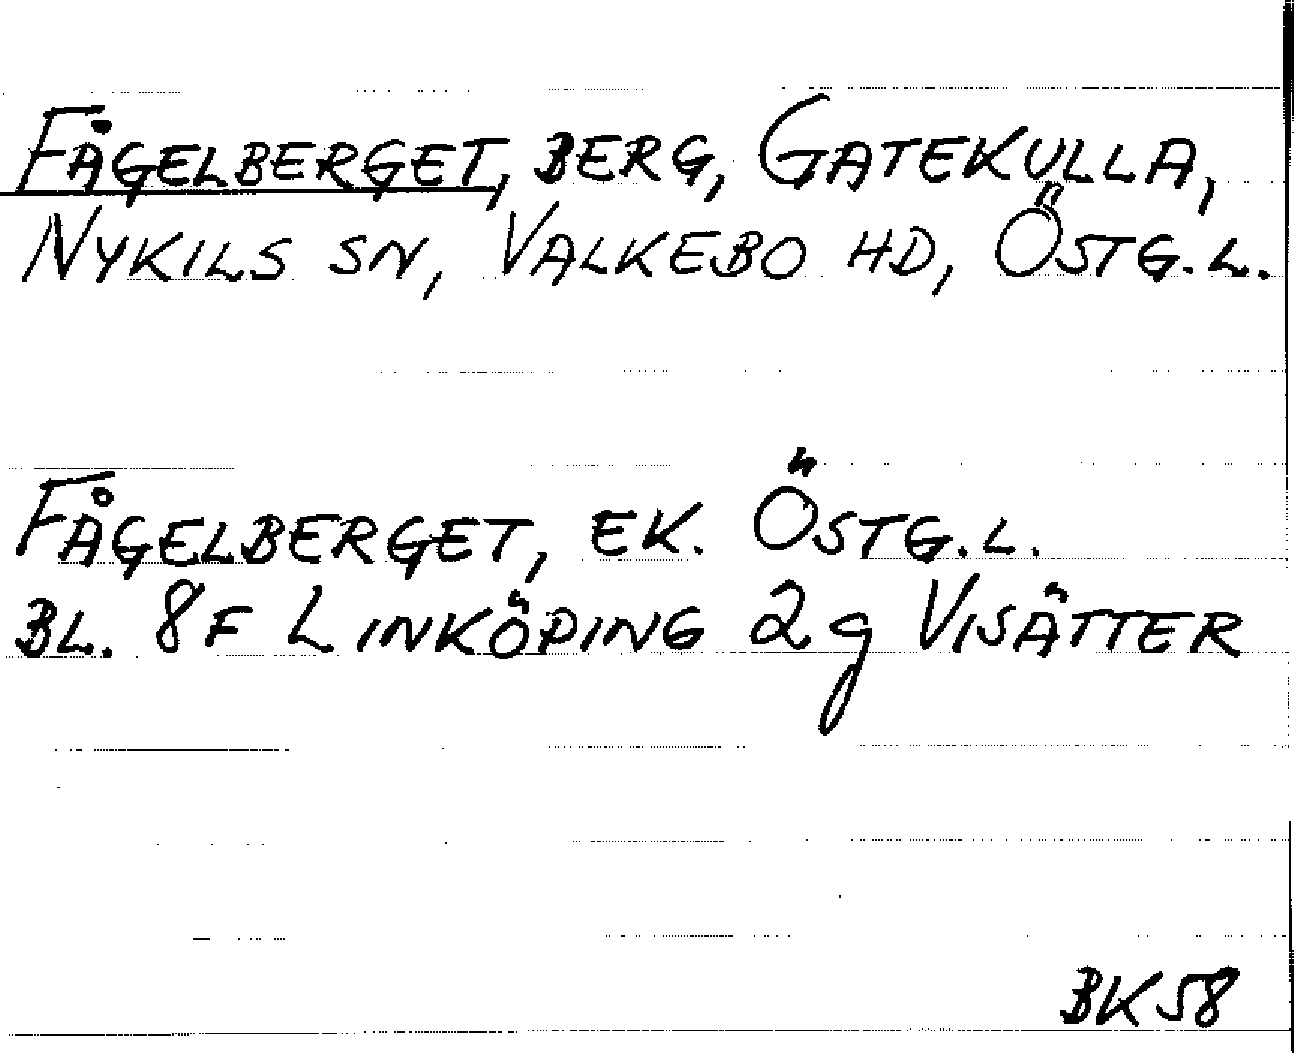 FÅGELBERGET, BERG, GATEKULLA,
NYKILS SN, VALKEBO HD, ÖSTG.L.
FÅGELBERGET, EK. ÖSTG.L.
BL. 8F LINKÖPING 2g VISÄTTER
BK58